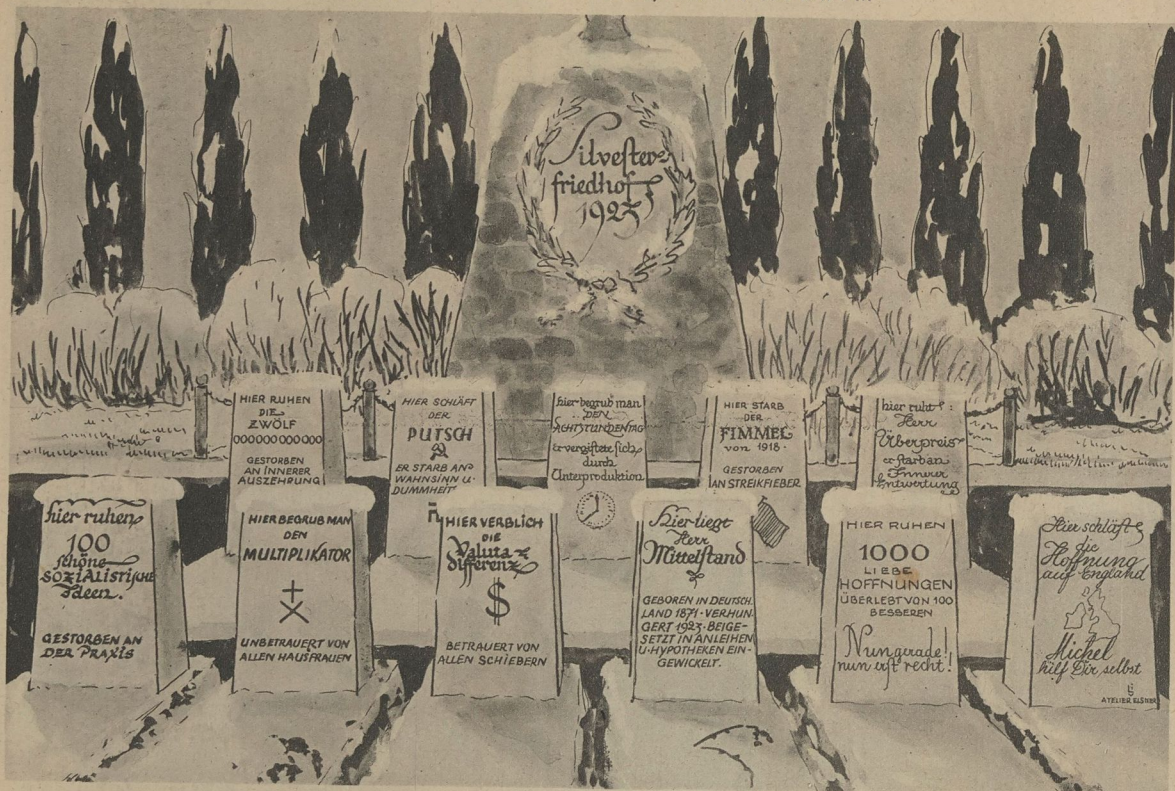 Silvester-
friedhof
1923
HIER RUHEN
DIE
ZWÖLF
000000000000
GESTORBEN
AN INNERER
AUSZEHRUNG
HIER SCHLÄFT
DER
PUTSCH
ER STARB AN
WAHNSINN U.
DUMMHEIT
hier begrub man
DEN
ACHTSTUNDENTAG
er vergiftete sich
durch
Unterproduktion
HIER STARB
DER
FIMMEL
von 1918.
GESTORBEN
AN STREIKFIEBER
hier ruht:
Herr
Überpreis
er starb an
Innerer
Entwertung
hier ruhen
100
schöne
SOZIALISTISCHE
Ideen.
GESTORBEN AN
DER PRAXIS
HIER BEGRUB MAN
DEN
MULTIPLIKATOR
UNBETRAUERT VON
ALLEN HAUSFRAUEN
HIER VERBLICH
DIE
Valuta-
Differenz
$
BETRAUERT VON
ALLEN SCHIEBERN
Hier liegt
Herr
Mittelstand
GEBOREN IN DEUTSCH-
LAND 1871 · VERHUN-
GERT 1923 · BEIGE-
SETZT IN ANLEIHEN
U · HYPOTHEKEN EIN-
GEWICKELT.
HIER RUHEN
1000
LIEBE
HOFFNUNGEN
ÜBERLEBT VON 100
BESSEREN
Nun gerade!
nun erst recht!
Hier schläft
die
Hoffnung
auf England
Michel
hilf Dir selbst
ATELIER ELSNER